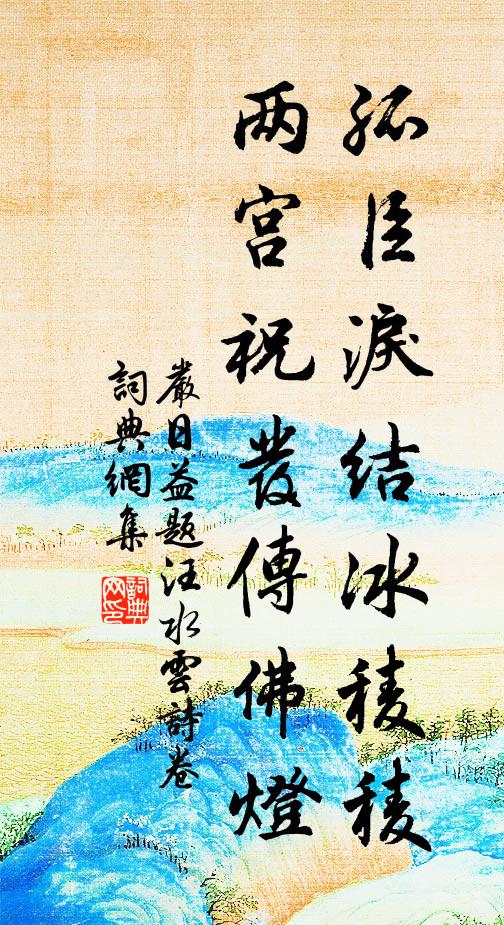 孤臣淚结冰稜稜
两宫祝髮傳佛燈
嚴日益题汪水雲詩卷
詞典網集
詞典